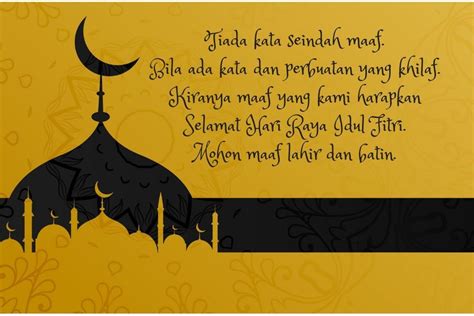 Tiada kata seindah maaf.
Bila ada kata dan perbuatan yang khilaf.
Kiranya maaf yang kami harapkan
Selamat Hari Raya Idul Fitri.
Mohon maaf lahir dan batin.